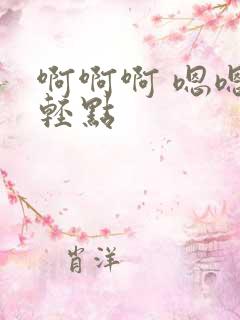 啊啊啊 嗯嗯
輕點
肖洋